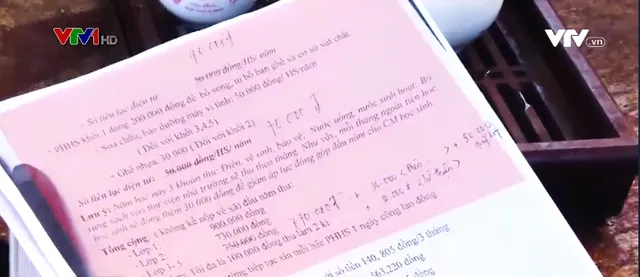 VTV1 HD
VTV.vn
70.000đ
50.000 đồng/HS/ năm
- Sổ liên lạc điện tử
- PHHS khối 1 đóng 200.000 đồng để bổ sung, tu bổ bàn ghế và cơ sở vật chất.
- Sửa chữa, bảo dưỡng máy vi tính: 50.000 đồng/ HS/năm
( Đối với khối 3,4,5)
- Ghế nhựa: 30.000 ( Đối với khối 2)
70.000đ
Sổ liên lạc điện tử: 50.000 đồng/HS/ năm
Lưu ý: Năm học này 3 khoản thu: Điện, vệ sinh, bảo vệ. Nước uống, nước sinh hoạt. Bổ
sung sách vào thư viện nhà trường sẽ thu theo tháng. Như vậy, mỗi tháng ngoài tiền học,
học sinh sẽ đóng thêm 30.000 đồng để giảm áp lực đóng góp đầu năm cho CM học sinh
Tổng cộng ( không kể nộp về xã) đầu năm thu:
- Lớp 1: 900.000 đồng
- Lớp 2: 730.000 đồng
- Lớp 3- 5 750.000 đồng
Tối đa là 100.000 đồng thu làm 2 kì
tiếp tục xin mỗi bậc PHHS 1 ngày công lao động
số tiền 140, 805 đồng/3 tháng
563.220 đồng